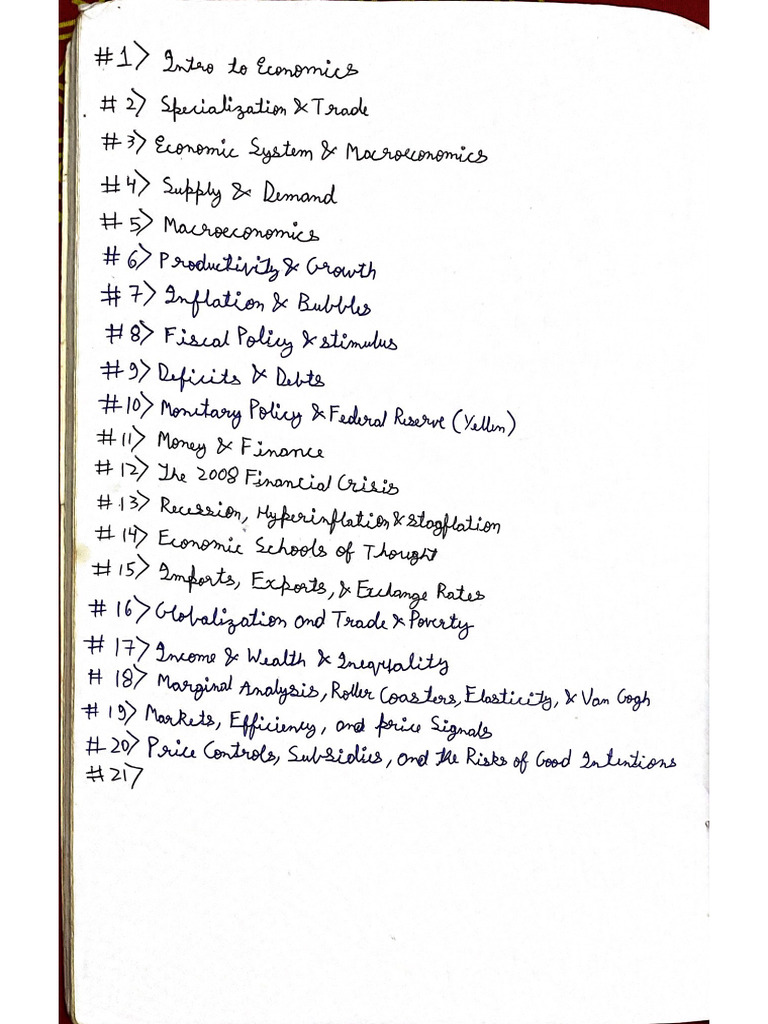 #1) Intro to Economics
#2) Specialization & Trade
#3) Economic System & Macroeconomics
#4) Supply & Demand
#5) Macroeconomics
#6) Productivity & Growth
#7) Inflation & Bubbles
#8) Fiscal Policy & stimulus
#9) Deficits & Debts
#10) Monetary Policy & Federal Reserve (Yellen)
#11) Money & Finance
#12) The 2008 Financial Crisis
#13) Recession, Hyperinflation & stagflation
#14) Economic Schools of Thought
#15) Imports, Exports, & Exchange Rates
#16) Globalization and Trade & Poverty
#17) Income & Wealth & Inequality
#18) Marginal Analysis, Roller Coasters, Elasticity, & Van Gogh
#19) Markets, Efficiency, and price Signals
#20) Price Controls, Subsidies, and the Risks of Good Intentions
#21)